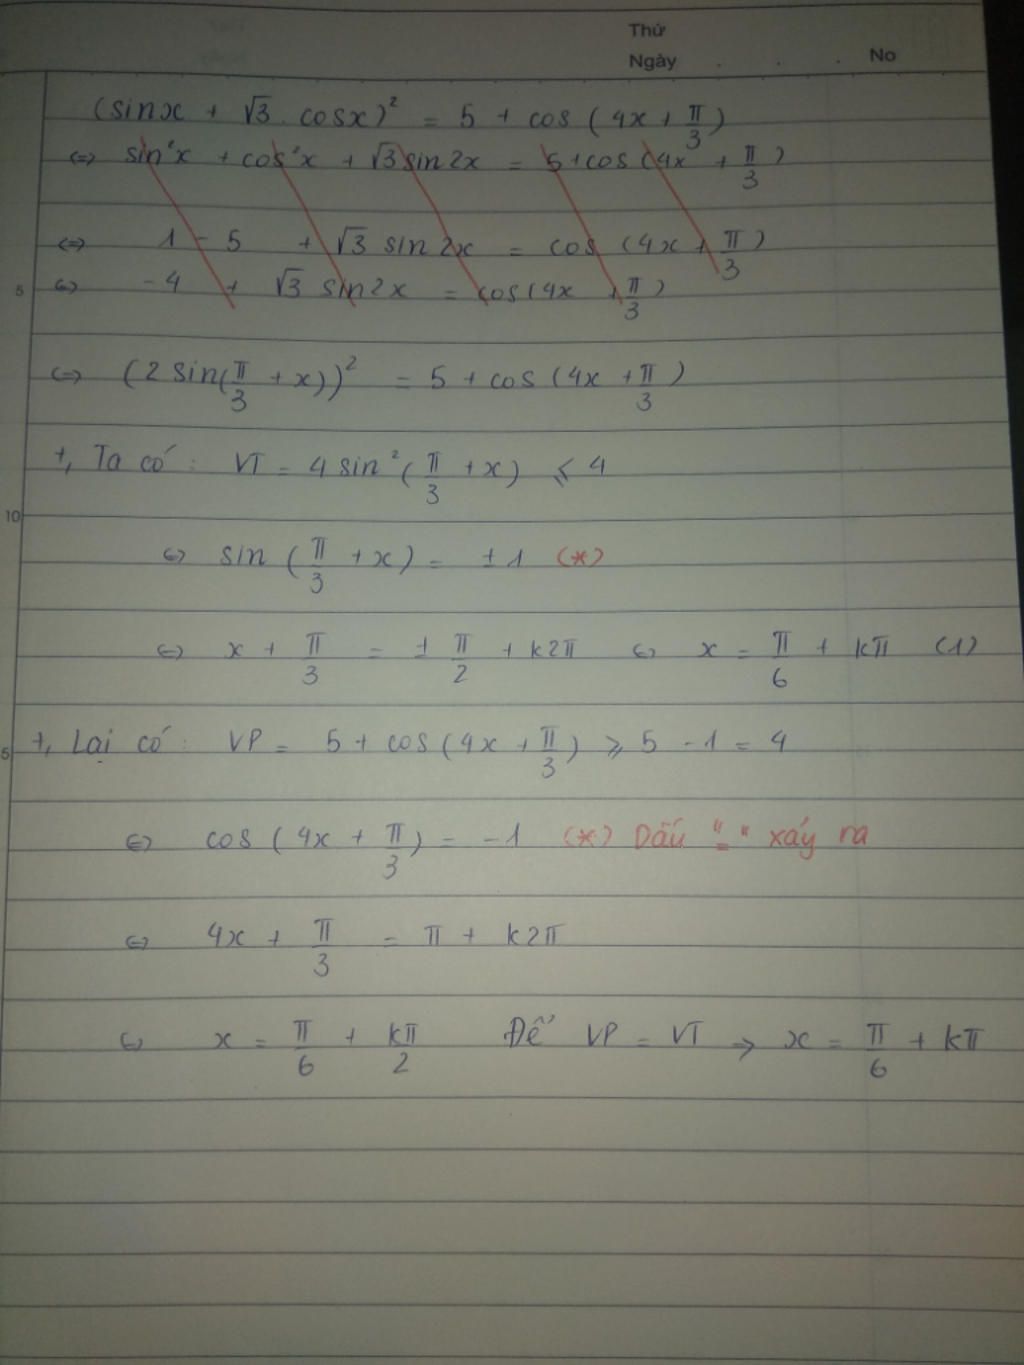 Thứ
Ngày . . . No
(sinx + √3 . cosx)² = 5 + cos (4x + π/3)
<=> sin²x + cos²x + √3 sin2x = 5 + cos (4x + π/3)
<=> 1 - 5 + √3 sin 2x = cos (4x + π/3)
5 <=> -4 + √3 sin2x = cos(4x + π/3)
<=> (2 sin(π/3 + x))² = 5 + cos (4x + π/3)
+, Ta có : VT = 4 sin² (π/3 + x) ≤ 4
10
<=> sin (π/3 + x) = ± 1 (*)
<=> x + π/3 = ± π/2 + k2π <=> x = π/6 + kπ (1)
5 +, Lại có : VP = 5 + cos (4x + π/3) ≥ 5 - 1 = 4
<=> cos (4x + π/3) = -1 (*) Dấu "=" xảy ra
<=> 4x + π/3 = π + k2π
<=> x = π/6 + kπ/2 Để VP = VT => x = π/6 + kπ